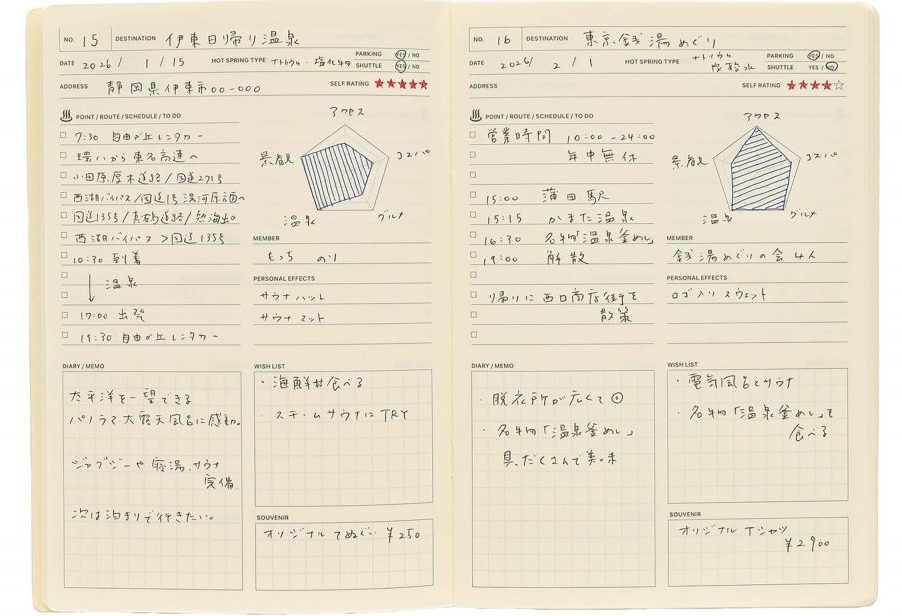 NO. 15 DESTINATION 伊東日帰り温泉
DATE 2026/ 1 /15 HOT SPRING TYPE ナトリウム・塩化物 PARKING YES / NO
SHUTTLE YES / NO
ADDRESS 静岡県伊東市00-000 SELF RATING ★★★★★
POINT / ROUTE / SCHEDULE / TO DO
7:30 自由が丘レンタカー
環八から東名高速へ
小田原厚木道路/国道271号
西湘バイパス/国道1号
国道135号/真鶴道路/熱海
西湘バイパス>国道135号
10:30 到着
↓ 温泉
17:00 出発
19:30 自由が丘レンタカー
アクセス
景観
コスパ
温泉
グルメ
MEMBER
もっち のり
PERSONAL EFFECTS
サウナハット
サウナマット
DIARY / MEMO
太平洋を一望できる
パノラマ大露天風呂に感動。
ジャグジーや寝湯、サウナ
完備。
次は泊まりで行きたい。
WISH LIST
・海鮮丼食べる
・スチームサウナにTRY
SOUVENIR
オリジナルてぬぐい ¥250
NO. 16 DESTINATION 東京銭湯めぐり
DATE 2026/ 2 / 1 HOT SPRING TYPE ナトリウム
炭酸水 PARKING YES / NO
SHUTTLE YES / NO
ADDRESS SELF RATING ★★★★☆
POINT / ROUTE / SCHEDULE / TO DO
営業時間 10:00-24:00
年中無休
15:00 蒲田駅
15:15 かまた温泉
16:30 名物「温泉釜めし」
19:00 解散
帰りに西口商店街を
散策
アクセス
景観
コスパ
温泉
グルメ
MEMBER
銭湯めぐりの会 4人
PERSONAL EFFECTS
ロゴ入りスウェット
DIARY / MEMO
・脱衣所が広くて◎
・名物「温泉釜めし」
具だくさんで美味
WISH LIST
・電気風呂とサウナ
・名物「温泉釜めし」を
食べる
SOUVENIR
オリジナルTシャツ
¥2900